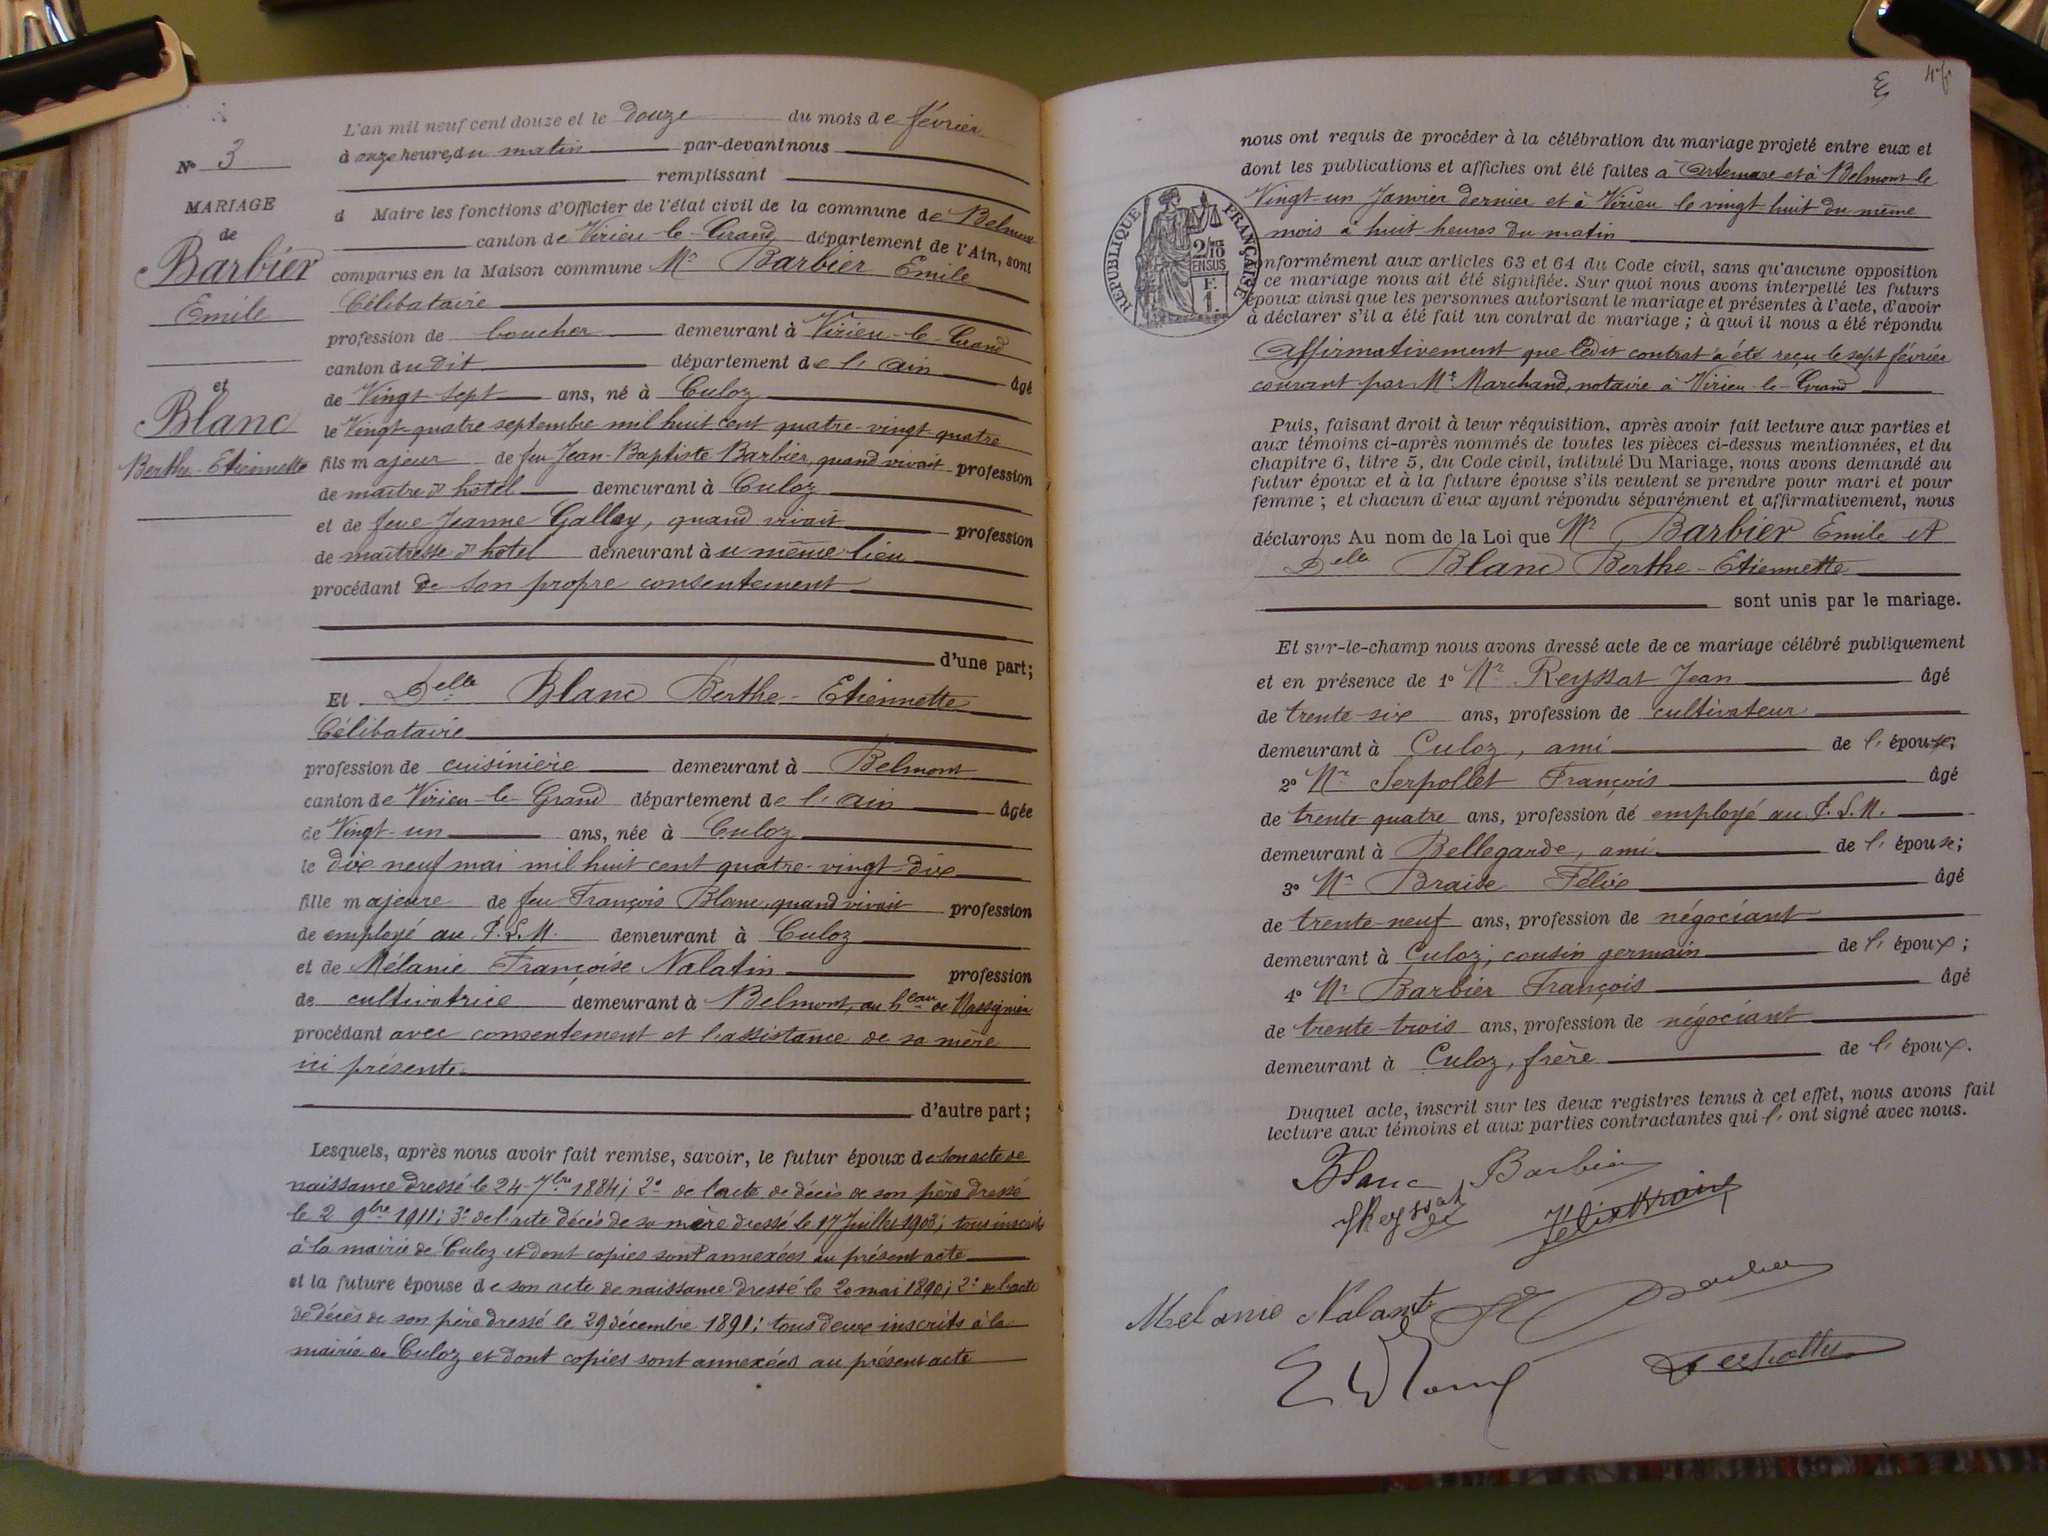 L'an mil neuf cent douze et le douze du mois de février
N° 3
à onze heures du matin par-devant nous
remplissant
MARIAGE
de
d Maire les fonctions d'Officier de l'état civil de la commune de Belmont
canton de Virieu-le-Grand département de l'Ain, sont
Barbier
Emile
comparus en la Maison commune Mr Barbier Emile
Célibataire
profession de boucher demeurant à Virieu-le-Grand
canton dudit département de l'Ain âgé
et
de Vingt-sept ans, né à Culoz
Blanc
Berthe-Etiennette
le Vingt-quatre septembre mil huit cent quatre-vingt-quatre
fils majeur de feu Jean-Baptiste Barbier, quand vivait profession
de maître d'hôtel demeurant à Culoz
et de feue Jeanne Gallay, quand vivait profession
de maîtresse d'hôtel demeurant au même lieu
procédant de son propre consentement
d'une part;
Et Delle Blanc Berthe-Etiennette
Célibataire
profession de cuisinière demeurant à Belmont
canton de Virieu-le-Grand département de l'Ain âgée
de Vingt-un ans, née à Culoz
le dix neuf mai mil huit cent quatre-vingt-dix
fille majeure de feu François Blanc, quand vivait profession
de employé au P.L.M. demeurant à Culoz
et de Mélanie Françoise Nalatin profession
de cultivatrice demeurant à Belmont, au heau de Massignieu
procédant avec consentement et l'assistance de sa mère
ici présente
d'autre part;
Lesquels, après nous avoir fait remise, savoir, le futur époux de son acte de
naissance dressé le 24 7bre 1884; 2° de l'acte de décès de son père dressé
le 2 9bre 1911; 3° de l'acte décès de sa mère dressé le 17 Juillet 1903; tous inscrits
à la mairie de Culoz et dont copies sont annexées au présent acte
et la future épouse de son acte de naissance dressé le 20 mai 1890; 2° de l'acte
de décès de son père dressé le 29 décembre 1891; tous deux inscrits à la
mairie de Culoz et dont copies sont annexées au présent acte
nous ont requis de procéder à la célébration du mariage projeté entre eux et
dont les publications et affiches ont été faites à Artemare et à Belmont le
Vingt-un Janvier dernier et à Virieu le vingt-huit du même
mois à huit heures du matin
RÉPUBLIQUE FRANÇAISE
2/10
EN SUS
F.
1.
onformément aux articles 63 et 64 du Code civil, sans qu'aucune opposition
ce mariage nous ait été signifiée. Sur quoi nous avons interpellé les futurs
époux ainsi que les personnes autorisant le mariage et présentes à l'acte, d'avoir
à déclarer s'il a été fait un contrat de mariage; à quoi il nous a été répondu
Affirmativement que ledit contrat a été reçu le sept février
courant par Me Marchand, notaire à Virieu-le-Grand
Puis, faisant droit à leur réquisition, après avoir fait lecture aux parties et
aux témoins ci-après nommés de toutes les pièces ci-dessus mentionnées, et du
chapitre 6, titre 5, du Code civil, intitulé Du Mariage, nous avons demandé au
futur époux et à la future épouse s'ils veulent se prendre pour mari et pour
femme; et chacun d'eux ayant répondu séparément et affirmativement, nous
déclarons Au nom de la Loi que Mr Barbier Emile et
Delle Blanc Berthe-Etiennette
sont unis par le mariage.
Et sur-le-champ nous avons dressé acte de ce mariage célébré publiquement
et en présence de 1° Mr Reyssat Jean âgé
de trente-six ans, profession de cultivateur
demeurant à Culoz, ami de l'épouse;
2° Mr Serpollet François âgé
de trente quatre ans, profession de employé au P.L.M.
demeurant à Bellegarde, ami de l'épouse;
3° Mr Braise Félix âgé
de trente-neuf ans, profession de négociant
demeurant à Culoz, cousin germain de l'époux;
4° Mr Barbier François âgé
de trente-trois ans, profession de négociant
demeurant à Culoz, frère de l'époux.
Duquel acte, inscrit sur les deux registres tenus à cet effet, nous avons fait
lecture aux témoins et aux parties contractantes qui l'ont signé avec nous.
Blanc Barbier
JReyssat Félix Braise
Melanie Nalantin Barbier
Serpollet